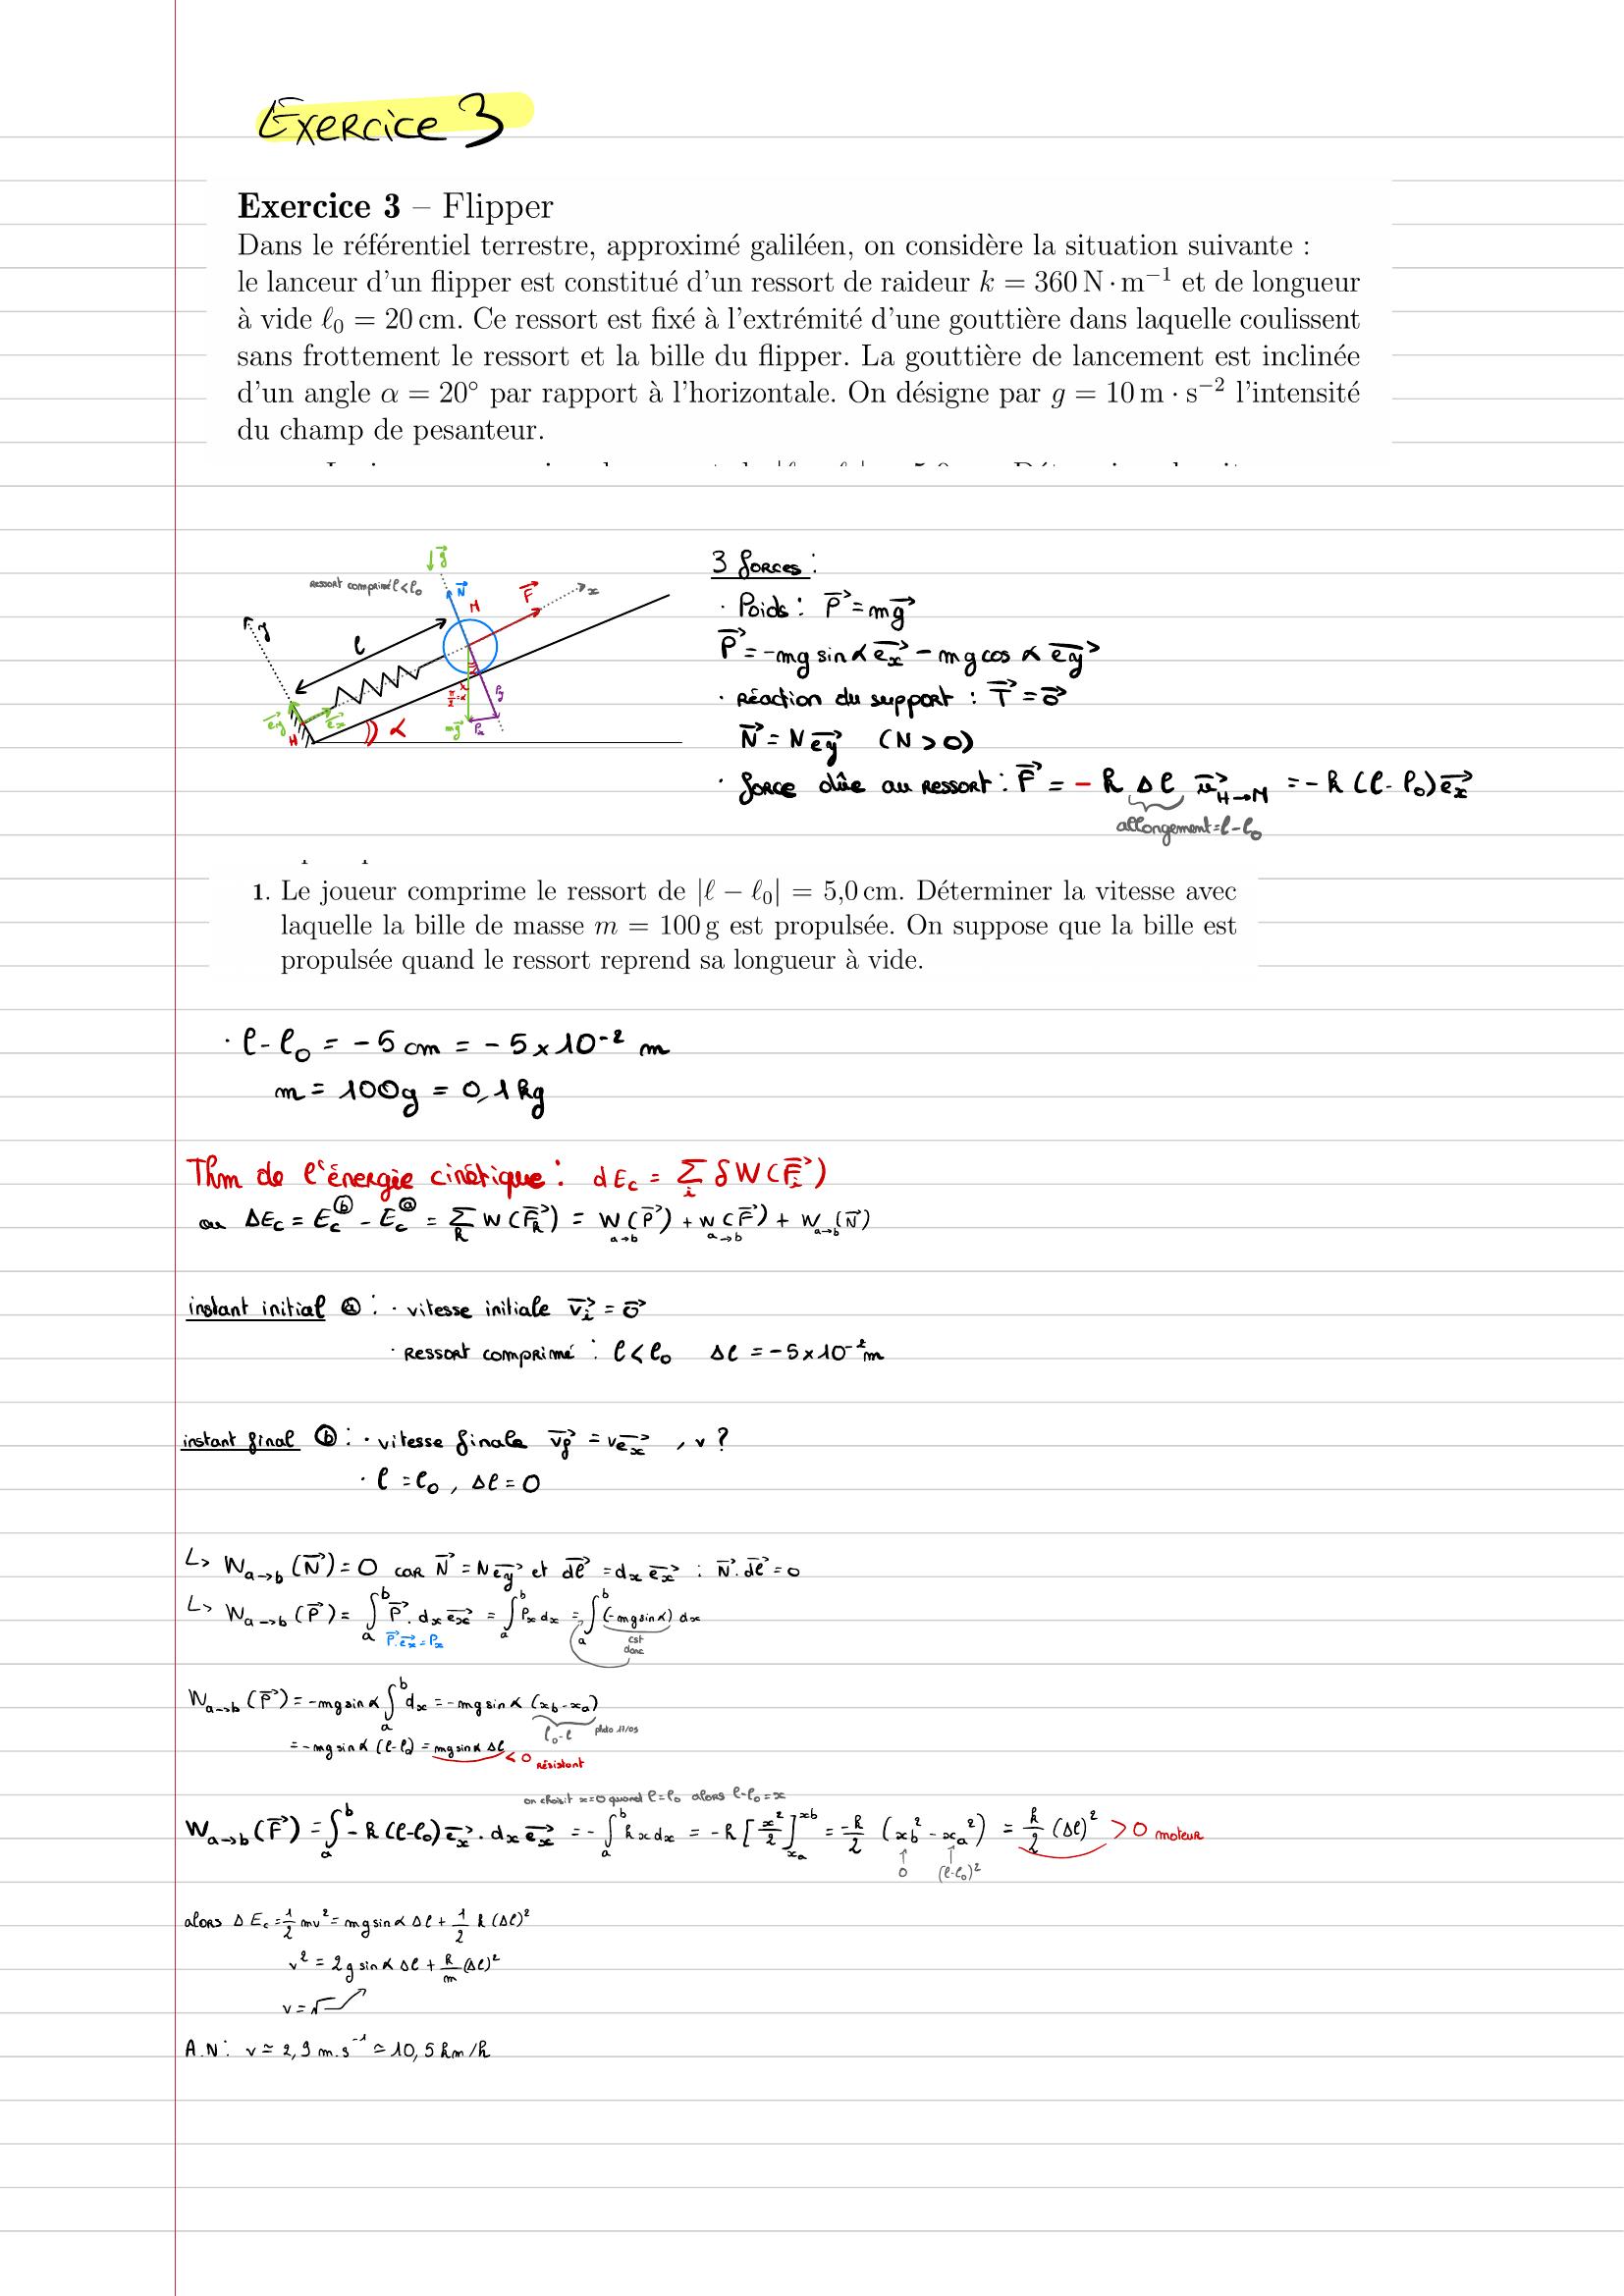 Exercice 3
Exercice 3 – Flipper
Dans le référentiel terrestre, approximé galiléen, on considère la situation suivante :
le lanceur d'un flipper est constitué d'un ressort de raideur k = 360 N · m⁻¹ et de longueur
à vide ℓ₀ = 20 cm. Ce ressort est fixé à l'extrémité d'une gouttière dans laquelle coulissent
sans frottement le ressort et la bille du flipper. La gouttière de lancement est inclinée
d'un angle α = 20° par rapport à l'horizontale. On désigne par g = 10 m · s⁻² l'intensité
du champ de pesanteur.
ressort comprimé ℓ<ℓ₀
g⃗
N⃗
M
F⃗
x
y
ℓ
e⃗y
e⃗x
H
α
π/2-α
α
mg⃗
Px
Py
3 forces :
· Poids : P⃗ = mg⃗
P⃗ = -mg sin α e⃗x - mg cos α e⃗y
· Réaction du support : T⃗ = 0⃗
N⃗ = N e⃗y (N > 0)
· force dûe au ressort : F⃗ = - k Δℓ u⃗H→M = - k (ℓ - ℓ₀) e⃗x
allongement = ℓ - ℓ₀
1. Le joueur comprime le ressort de |ℓ − ℓ₀| = 5,0 cm. Déterminer la vitesse avec
laquelle la bille de masse m = 100 g est propulsée. On suppose que la bille est
propulsée quand le ressort reprend sa longueur à vide.
· ℓ - ℓ₀ = - 5 cm = - 5 × 10⁻² m
m = 100g = 0,1 kg
Thm de l'énergie cinétique : dEc = Σi δW(F⃗i)
ou ΔEc = Ec^ⓑ - Ec^ⓐ = Σk W(F⃗k) = W a→b (P⃗) + W a→b (F⃗) + W a→b (N⃗)
instant initial ⓐ : · vitesse initiale v⃗i = 0⃗
· ressort comprimé : ℓ < ℓ₀ Δℓ = -5×10⁻² m
instant final ⓑ : · vitesse finale v⃗f = v e⃗x , v ?
· ℓ = ℓ₀ , Δℓ = 0
↳ Wa→b (N⃗) = 0 car N⃗ = N e⃗y et dℓ⃗ = dx e⃗x : N⃗ . dℓ⃗ = 0
↳ Wa→b (P⃗) = ∫ₐᵇ P⃗ . dx e⃗x = ∫ₐᵇ Px dx = ∫ₐᵇ (-mg sin α) dx
P⃗.e⃗x = Px
cst
donc
Wa→b (P⃗) = -mg sin α ∫ₐᵇ dx = -mg sin α (xb - xa)
ℓ₀ - ℓ photo 17/05
= -mg sin α (ℓ-ℓ₀) = mg sin α Δℓ < 0 résistant
on choisit x=0 quand ℓ=ℓ₀ alors ℓ-ℓ₀=x
Wa→b (F⃗) = ∫ₐᵇ - k (ℓ-ℓ₀) e⃗x . dx e⃗x = - ∫ₐᵇ k x dx = - k [x²/2]xa^xb = -k/2 (xb² - xa²) = k/2 (Δℓ)² > 0 moteur
↑ 0 ↑ (ℓ-ℓ₀)²
alors ΔEc = 1/2 mv² = mg sin α Δℓ + 1/2 k (Δℓ)²
v² = 2g sin α Δℓ + k/m (Δℓ)²
v = √
A.N : v ≃ 2,9 m.s⁻¹ ≃ 10,5 km/h